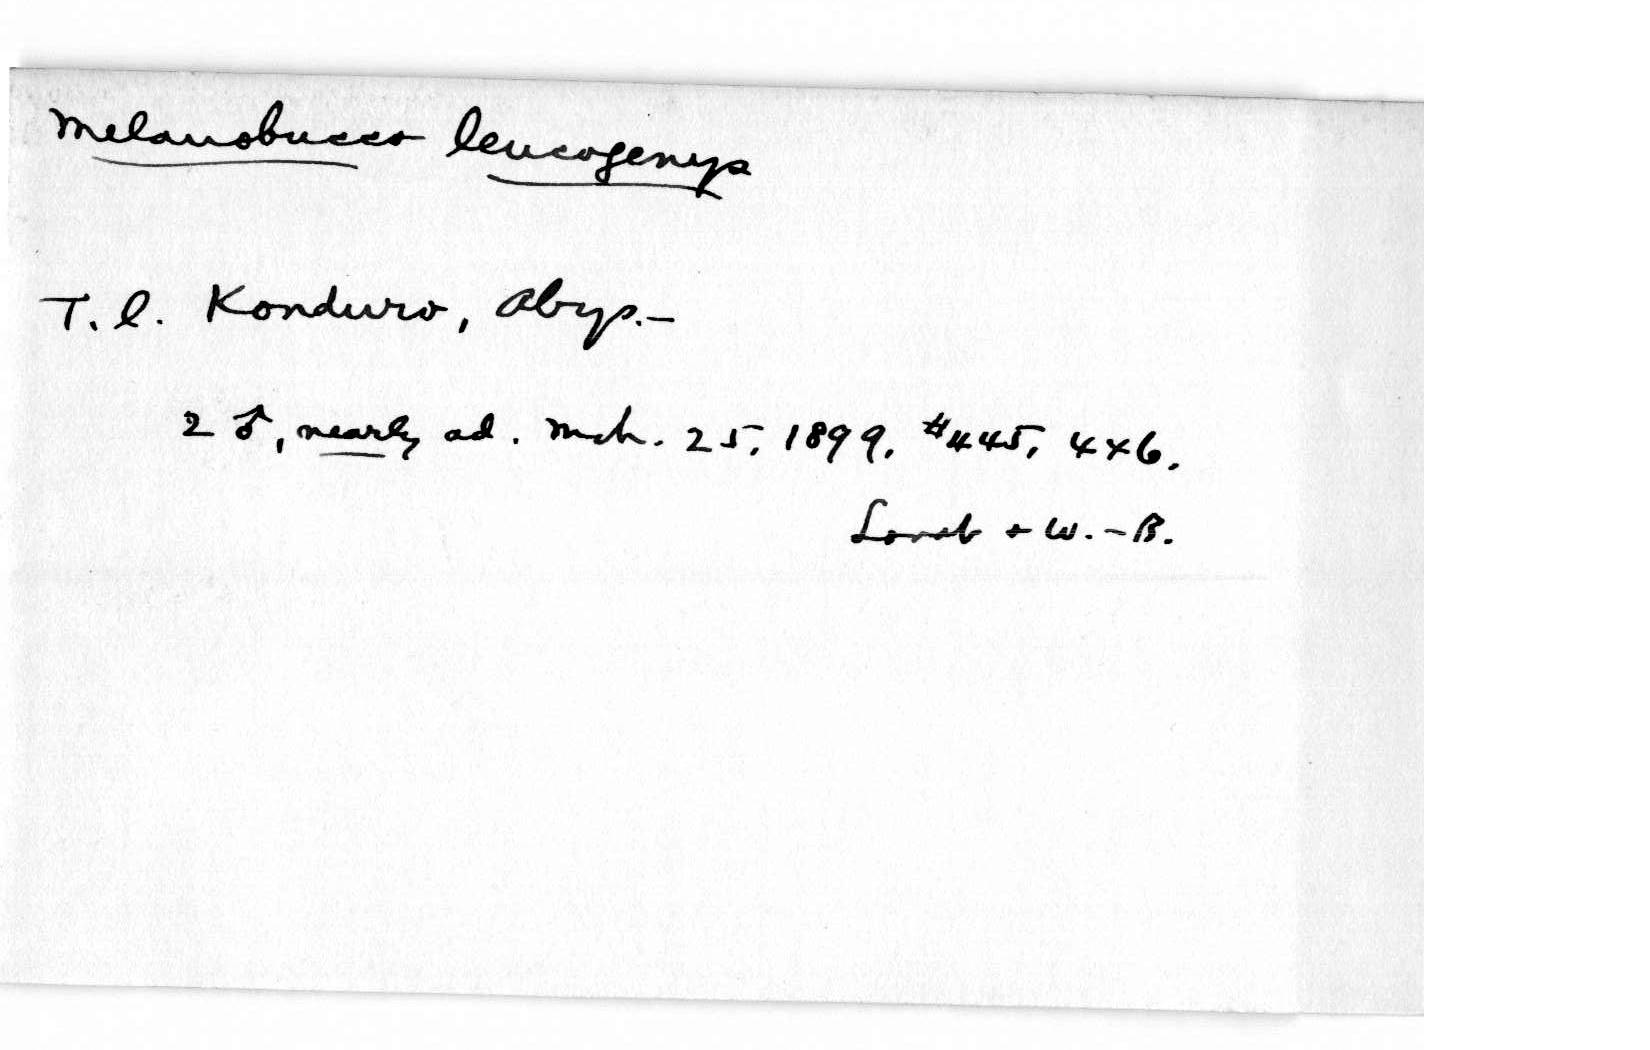 Melanobucco leucogenys
T.l. Konduro, Abys.-
2 ♂, nearly ad. Mch. 25, 1899. #445, 446.
Lovat + W.-B.